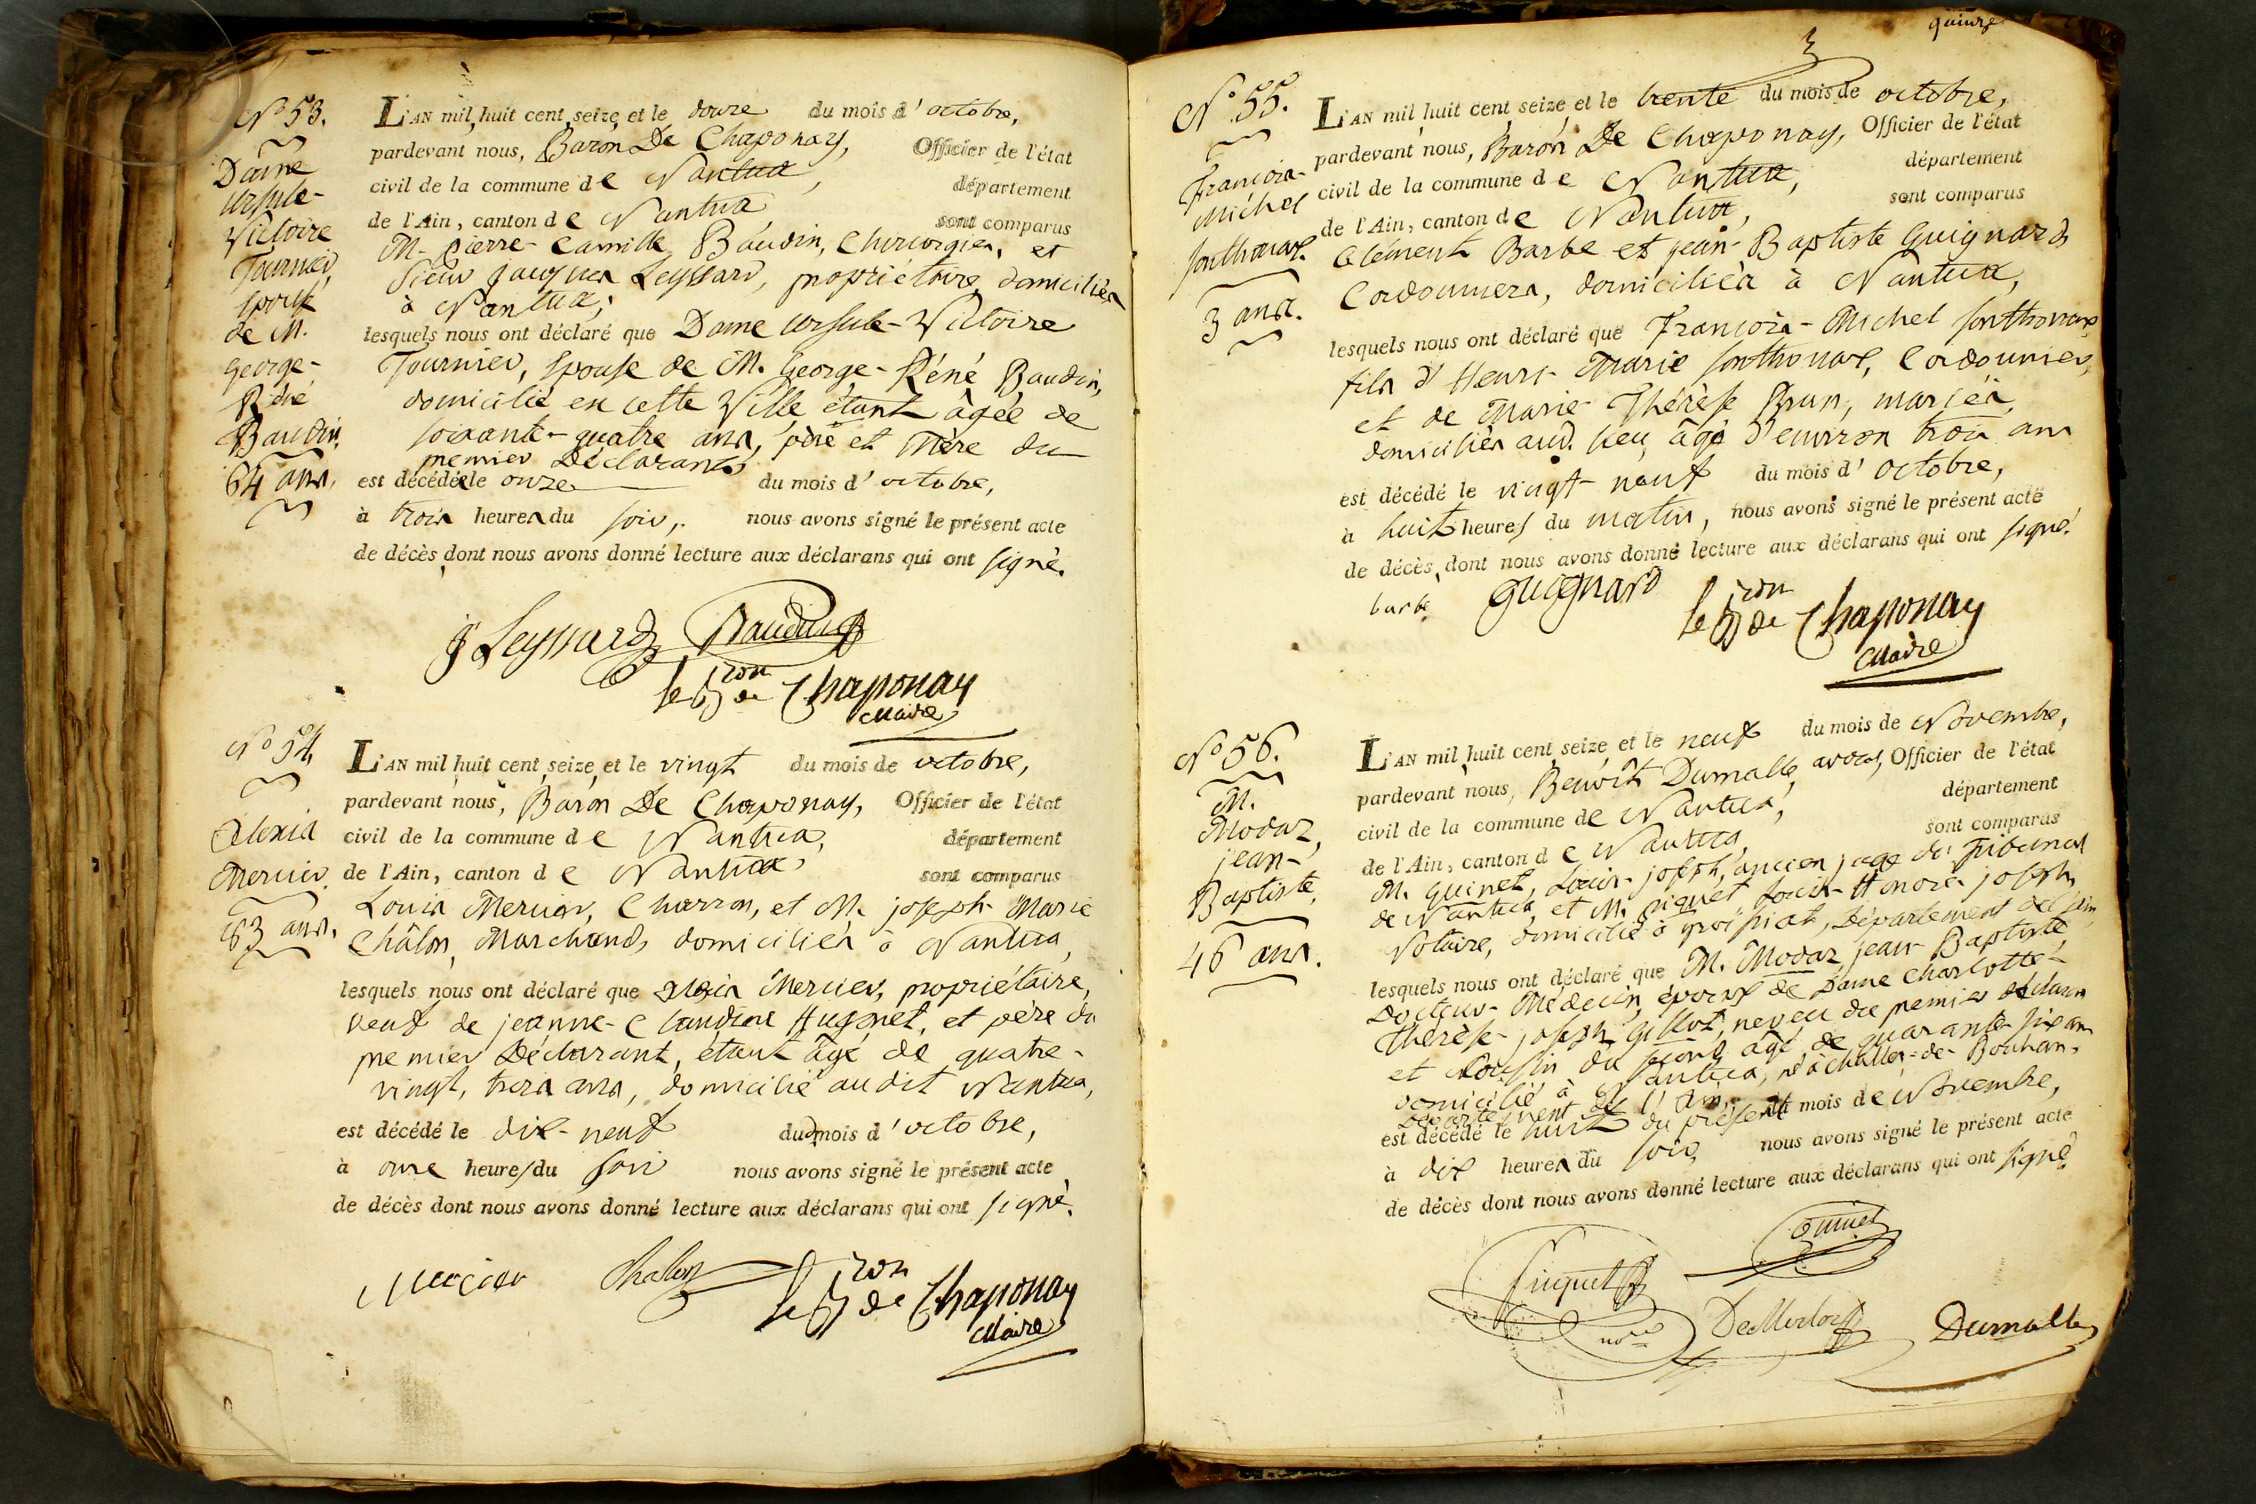 N° 53.
Dame
Ursule-
Victoire
Tournier,
Epouse
de M.
George-
Réné
Baudin.
64 ans.
L'AN mil huit cent seize et le douze du mois d'octobre,
pardevant nous, Baron De Chaponay, Officier de l'état
civil de la commune de Nantua, département
de l'Ain, canton de Nantua sont comparus
M. Pierre-Camille Baudin, Chirurgien, et
Sieur Jacques Leyssard, propriétaire domiciliés
à Nantua;
lesquels nous ont déclaré que Dame Ursule-Victoire
Tournier, Epouse de M. George-Réné Baudin,
domicilié en cette Ville étant âgée de
soixante-quatre ans, père et Mère du
premier Déclarant,
est décédée le onze du mois d'octobre,
à trois heures du soir, nous avons signé le présent acte
de décès dont nous avons donné lecture aux déclarans qui ont signé.
J Leyssard Baudin
le Bron de Chaponay
Maire
N° 54
Alexis
Mercier.
83 ans.
L'AN mil huit cent seize et le vingt du mois de octobre,
pardevant nous, Baron De Chaponay, Officier de l'état
civil de la commune de Nantua, département
de l'Ain, canton de Nantua, sont comparus
Louis Mercier, Charron, et M. joseph Marie
Châlon, Marchand, domiciliés à Nantua,
lesquels nous ont déclaré que Alexis Mercier, propriétaire,
veuf de jeanne-Claudine Hugonet, et père du
premier Déclarant, étant âgé de quatre-
vingt, trois ans, domicilié audit Nantua,
est décédé le dix-neuf du mois d'octobre,
à onze heures du soir nous avons signé le présent acte
de décès dont nous avons donné lecture aux déclarans qui ont signé.
Mercier Chalon
le Bron de Chaponay
Maire
quinze
N° 55.
François-
Michel
Sonthonax.
3 ans.
L'AN mil huit cent seize et le trente du mois de octobre,
pardevant nous, Baron De Chaponay, Officier de l'état
civil de la commune de Nantua, département
de l'Ain, canton de Nantua, sont comparus
Clément Barbe et jean-Baptiste Guignard
Cordonniers, domiciliés à Nantua,
lesquels nous ont déclaré que François-Michel Sonthonax
fils d'Henri-Marie Sonthonax, Cordonnier,
et de Marie-Thérèse Brun, mariés,
domiciliés aud. lieu, âgé d'environ trois ans
est décédé le vingt-neuf du mois d'octobre,
à huit heures du matin, nous avons signé le présent acte
de décès dont nous avons donné lecture aux déclarans qui ont signé.
barbe guignard
le Bron de Chaponay
Maire
N° 56.
M.
Modaz,
jean-
Baptiste,
46 ans.
L'AN mil huit cent seize et le neuf du mois de Novembre,
pardevant nous, Benoît Dumalle, avocat, Officier de l'état
civil de la commune de Nantua, département
de l'Ain, canton de Nantua, sont comparus
M. Guinet, Louis-joseph, ancien juge du Tribunal
de Nantua et M. Piquet, Louis-Honoré-joseph,
Notaire, domicilié à Groissiat, Département de l'Ain
lesquels nous ont déclaré que M. Modaz jean Baptiste
Docteur-Médecin, époux de Dame Charlotte-
Thérèse-joseph Gillot, neveu du premier déclarant
et Cousin du second âgé de quarante-six ans
domicilié à Nantua, né à Challes-de-Bouhan,
Département de l'Ain,
est décédé le huit du présent du mois de Novembre,
à dix heures du soir, nous avons signé le présent acte
de décès dont nous avons donné lecture aux déclarans qui ont signé
Guinet
Piquet
nore DeModaz Dumalle